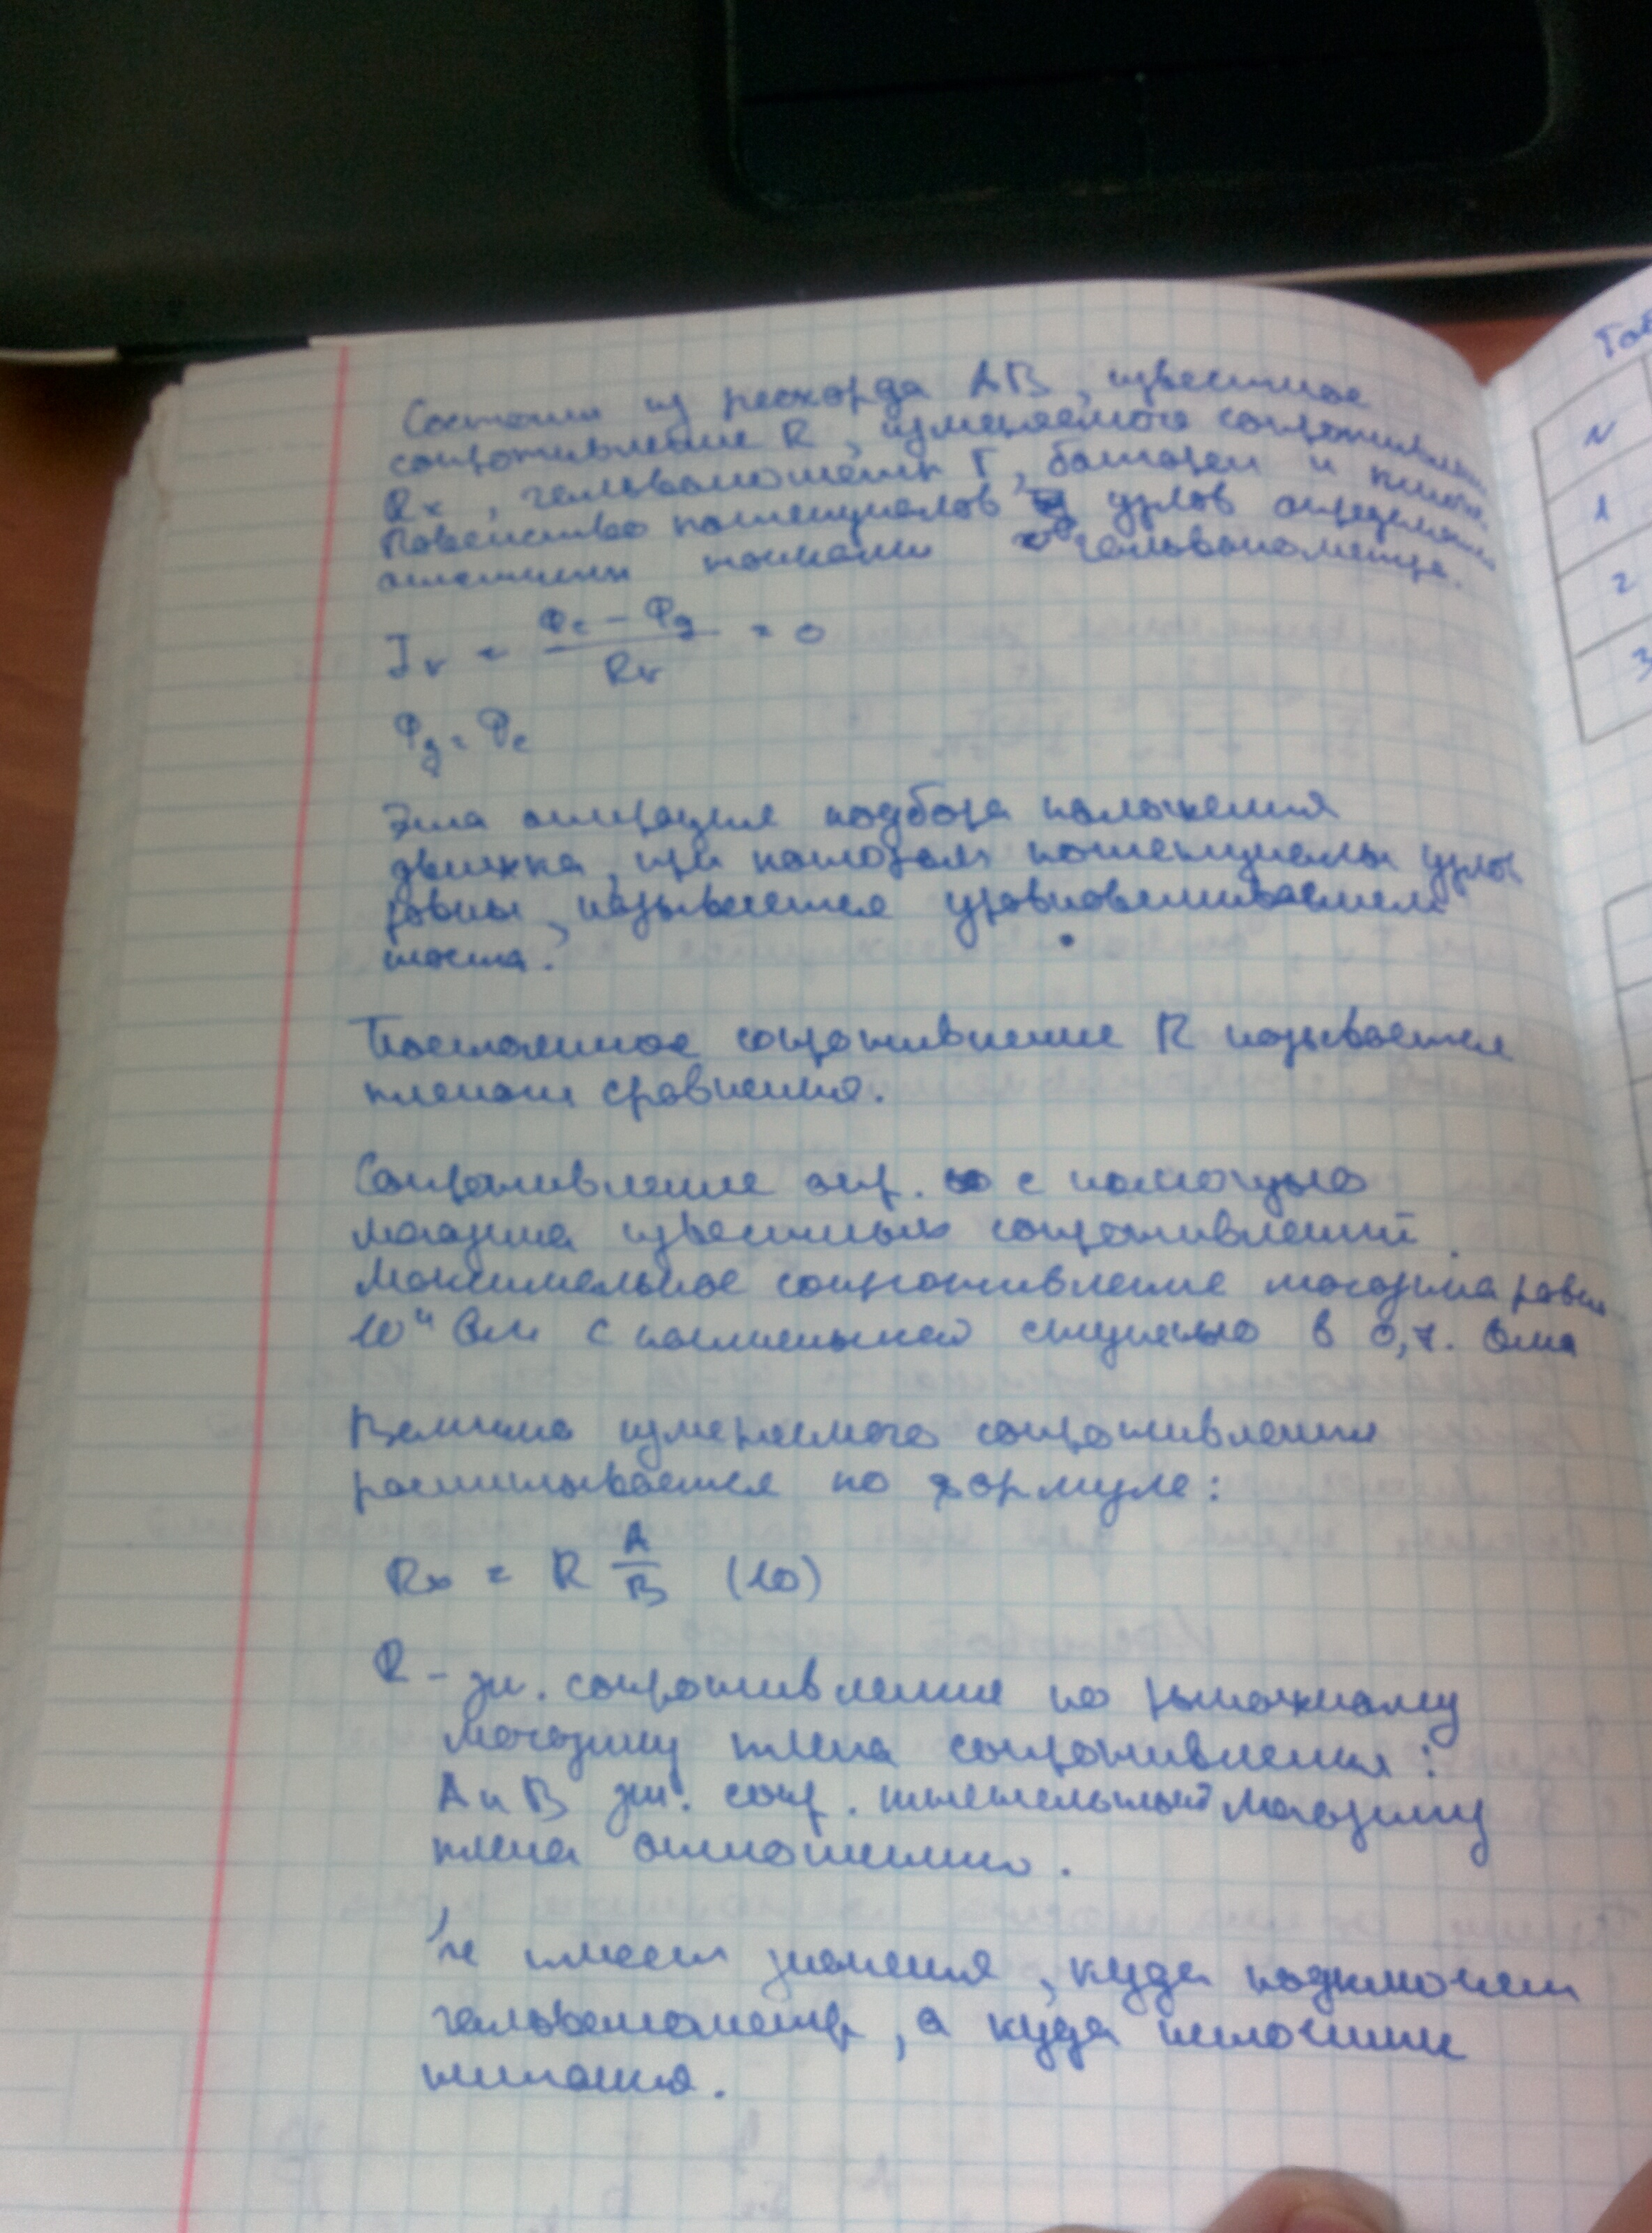 Состоит из реохорда АВ, известное
сопротивление R, измеряемого сопротивления
Rx, гальванометр Г, батареи и ключа.
Равенство потенциалов узлов определяется
отсутствием тока гальванометра.
Iг = φc - φд / Rг = 0
φд = φc
Эта операция подбора положения
движка, при котором потенциалы узлов
равны, называется уравновешиванием
моста.
Постоянное сопротивление R называется
плечом сравнения.
Сопротивление опр. с помощью
магазина известных сопротивлений.
Максимальное сопротивление магазина равно
10⁴ Ом с наименьшей ступенью в 0,1. Ома
Величина измеряемого сопротивления
рассчитывается по формуле:
Rx = R A/B (10)
R - зн. сопротивления по рычажному
магазину плеча сопротивления:
А и В зн. сопр. штепсельный магазину
плеча отношения.
Не имеет значения, куда подключен
гальванометр, а куда источник
питания.
Таб
N
1
2
3